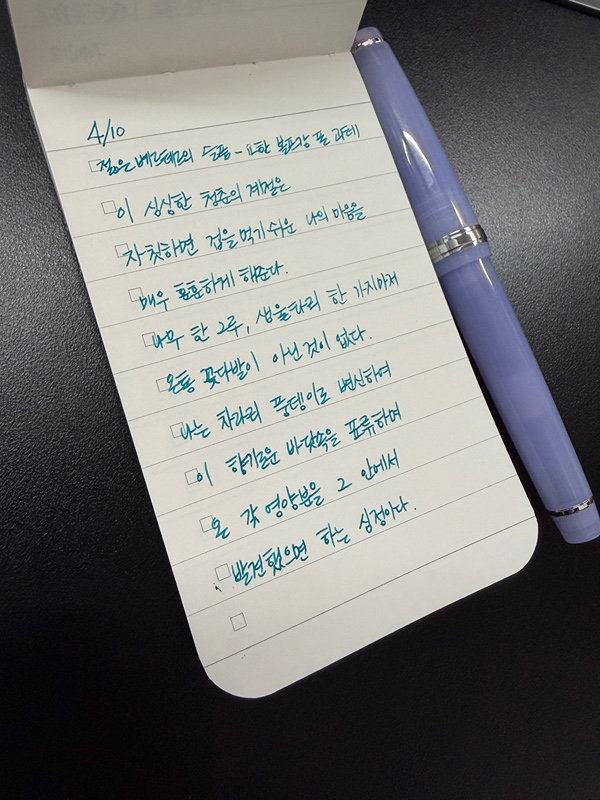 4/10
젊은 베르테르의 슬픔 - 요한 볼프강 폰 괴테
이 싱싱한 청춘의 계절은
자칫하면 겁을 먹기 쉬운 나의 마음을
매우 훈훈하게 해준다.
나무 한 그루, 생울타리 한 가지마저
온통 꽃다발이 아닌 것이 없다.
나는 차라리 풍뎅이로 변신하여
이 향기로운 바닷속을 표류하며
온갖 영양분을 그 안에서
발견했으면 하는 심정이다.